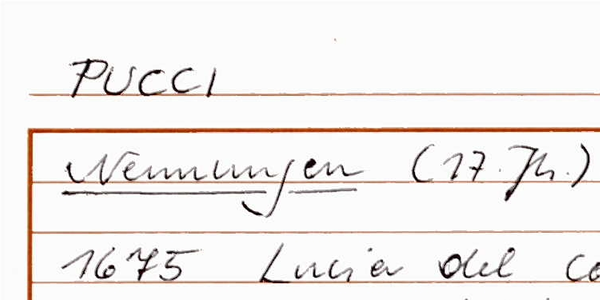 PUCCI
Nennungen (17. Jh.)
1675 Lucia del